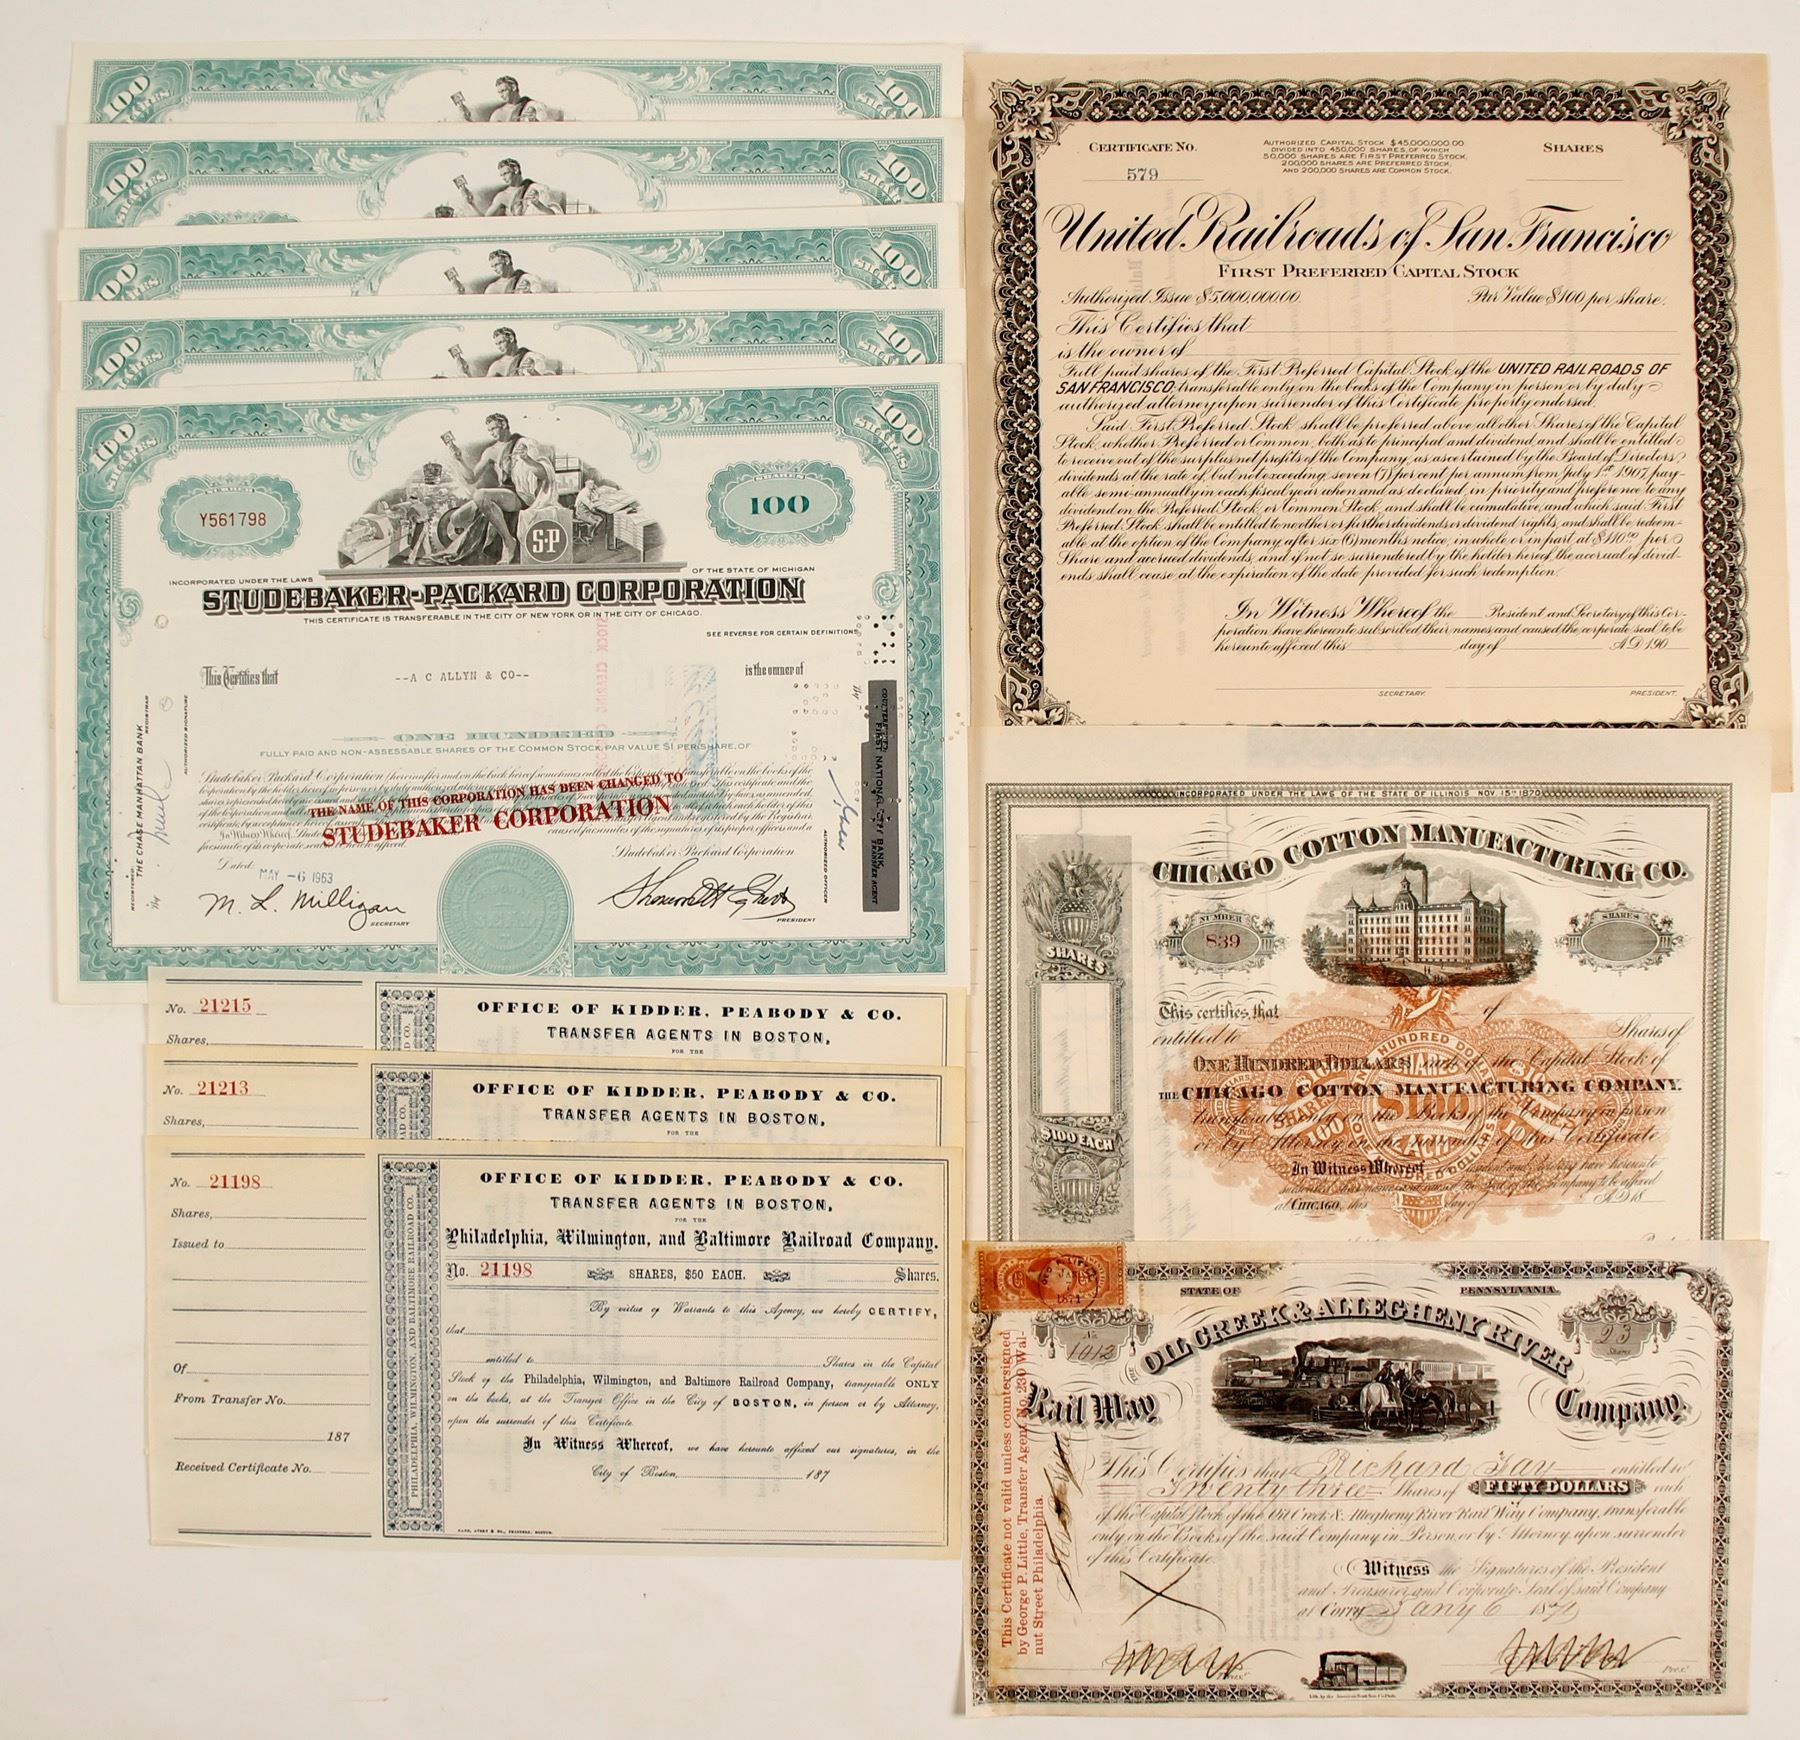 100
SHARES
100
SHARES
100
SHARES
100
SHARES
100
SHARES
100
SHARES
100
SHARES
100
SHARES
100
SHARES
100
SHARES
NUMBER
Y561798
SHARES
100
S-P
INCORPORATED UNDER THE LAWS
OF THE STATE OF MICHIGAN
STUDEBAKER-PACKARD CORPORATION
THIS CERTIFICATE IS TRANSFERABLE IN THE CITY OF NEW YORK OR IN THE CITY OF CHICAGO.
SEE REVERSE FOR CERTAIN DEFINITIONS
This Certifies that
--A C ALLYN & CO--
is the owner of
ONE HUNDRED
FULLY PAID AND NON-ASSESSABLE SHARES OF THE COMMON STOCK, PAR VALUE $1 PER SHARE, OF
THE NAME OF THIS CORPORATION HAS BEEN CHANGED TO
STUDEBAKER CORPORATION
Dated:
MAY -6 1963
Studebaker-Packard Corporation
M. L. Milligan
SECRETARY
PRESIDENT
THE CHASE MANHATTAN BANK
REGISTRAR
AUTHORIZED SIGNATURE
FIRST NATIONAL CITY BANK
TRANSFER AGENT
AUTHORIZED OFFICER
No. 21215
Shares,
OFFICE OF KIDDER, PEABODY & CO.
TRANSFER AGENTS IN BOSTON,
FOR THE
No. 21213
Shares,
OFFICE OF KIDDER, PEABODY & CO.
TRANSFER AGENTS IN BOSTON,
FOR THE
No. 21198
Shares,
Issued to
Of
From Transfer No.
187
Received Certificate No.
PHILADELPHIA, WILMINGTON, AND BALTIMORE RAILROAD CO.
OFFICE OF KIDDER, PEABODY & CO.
TRANSFER AGENTS IN BOSTON,
FOR THE
Philadelphia, Wilmington, and Baltimore Railroad Company.
No. 21198 SHARES, $50 EACH. Shares.
By virtue of Warrants to this Agency, we hereby CERTIFY,
that
entitled to Shares in the Capital
Stock of the Philadelphia, Wilmington, and Baltimore Railroad Company, transferable ONLY
on the books, at the Transfer Office in the City of BOSTON, in person or by Attorney,
upon the surrender of this Certificate.
In Witness Whereof, we have hereunto affixed our signatures, in the
City of Boston, 187
RAND, AVERY & CO., PRINTERS, BOSTON.
CERTIFICATE NO.
579
AUTHORIZED CAPITAL STOCK $45,000,000.00
DIVIDED INTO 450,000 SHARES, OF WHICH
50,000 SHARES ARE FIRST PREFERRED STOCK,
200,000 SHARES ARE PREFERRED STOCK,
AND 200,000 SHARES ARE COMMON STOCK.
SHARES
United Railroads of San Francisco
FIRST PREFERRED CAPITAL STOCK
Authorized Issue $5,000,000.00. Par Value $100 per share.
This Certifies that
is the owner of
Full paid shares of the First Preferred Capital Stock of the UNITED RAILROADS OF
SAN FRANCISCO, transferable only on the books of the Company in person or by duly
authorized attorney upon surrender of this Certificate properly endorsed.
Said First Preferred Stock shall be preferred above all other Shares of the Capital
Stock, whether Preferred or Common, both as to principal and dividend, and shall be entitled
to receive out of the surplus net profits of the Company, as ascertained by the Board of Directors
dividends at the rate of, but not exceeding, seven (7) per cent per annum from July 1st 1907, pay-
able semi-annually in each fiscal year when and as declared, in priority and preference to any
dividend on the Preferred Stock or Common Stock, and shall be cumulative, and which said First
Preferred Stock shall be entitled to no other or further dividends or dividend rights, and shall be redeem-
able at the option of the Company, after six (6) months notice, in whole or in part at $110.00 per
Share and accrued dividends, and if not so surrendered by the holder hereof, the accrual of divid-
ends shall cease at the expiration of the date provided for such redemption.
In Witness Whereof the President and Secretary of this Cor-
poration have hereunto subscribed their names and caused the corporate seal to be
hereunto affixed this day of A.D. 190
SECRETARY.
PRESIDENT.
INCORPORATED UNDER THE LAWS OF THE STATE OF ILLINOIS NOV. 15TH 1870
CHICAGO COTTON MANUFACTURING CO.
NUMBER
839
SHARES
SHARES
$100 EACH
This certifies, that of
entitled to Shares of
ONE HUNDRED DOLLARS each of the Capital Stock of
THE CHICAGO COTTON MANUFACTURING COMPANY.
transferable only on the Books of the Company in person
or by Attorney on the surrender of this Certificate
In Witness Whereof
at CHICAGO, this day of A.D. 18
STATE OF PENNSYLVANIA.
No.
1012
23
Shares
THE OIL CREEK & ALLEGHENY RIVER
Rail Way Company.
This Certifies that Richard Tay entitled to
Twenty three Shares of FIFTY DOLLARS each
of the Capital Stock of the Oil Creek & Allegheny River Rail Way Company, transferable
only on the Books of the said Company in Person or by Attorney upon surrender
of this Certificate.
Witness the Signatures of the President
and Treasurer and Corporate Seal of said Company
at Corry Jany 6 1871
This Certificate not valid unless countersigned
by George P. Little, Transfer Agent, No. 230 Wal-
nut Street Philadelphia.